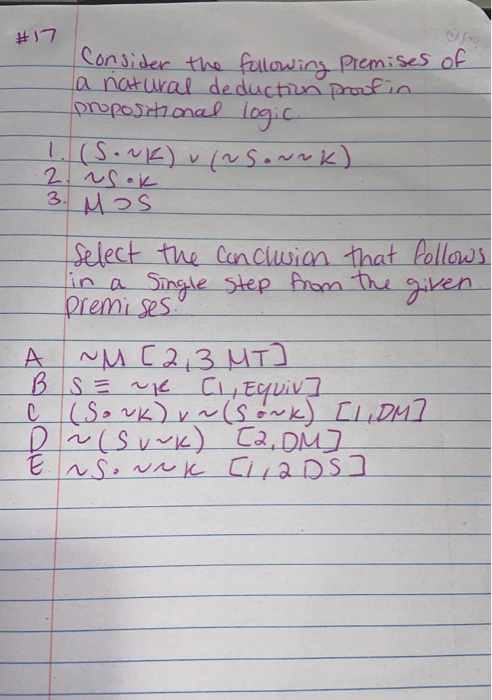 #17
Consider the following premises of
a natural deduction proof in
propositional logic.
1. (S • ~K) v (~S • ~~K)
2. ~S • K
3. M ⊃ S
Select the conclusion that follows
in a single step from the given
premises.
A ~M [2,3 MT]
B S ≡ ~K [1, Equiv]
C (S • ~K) v ~(S • ~K) [1, DM]
D ~(S v ~K) [2, DM]
E. ~S • ~~K [1,2 DS]